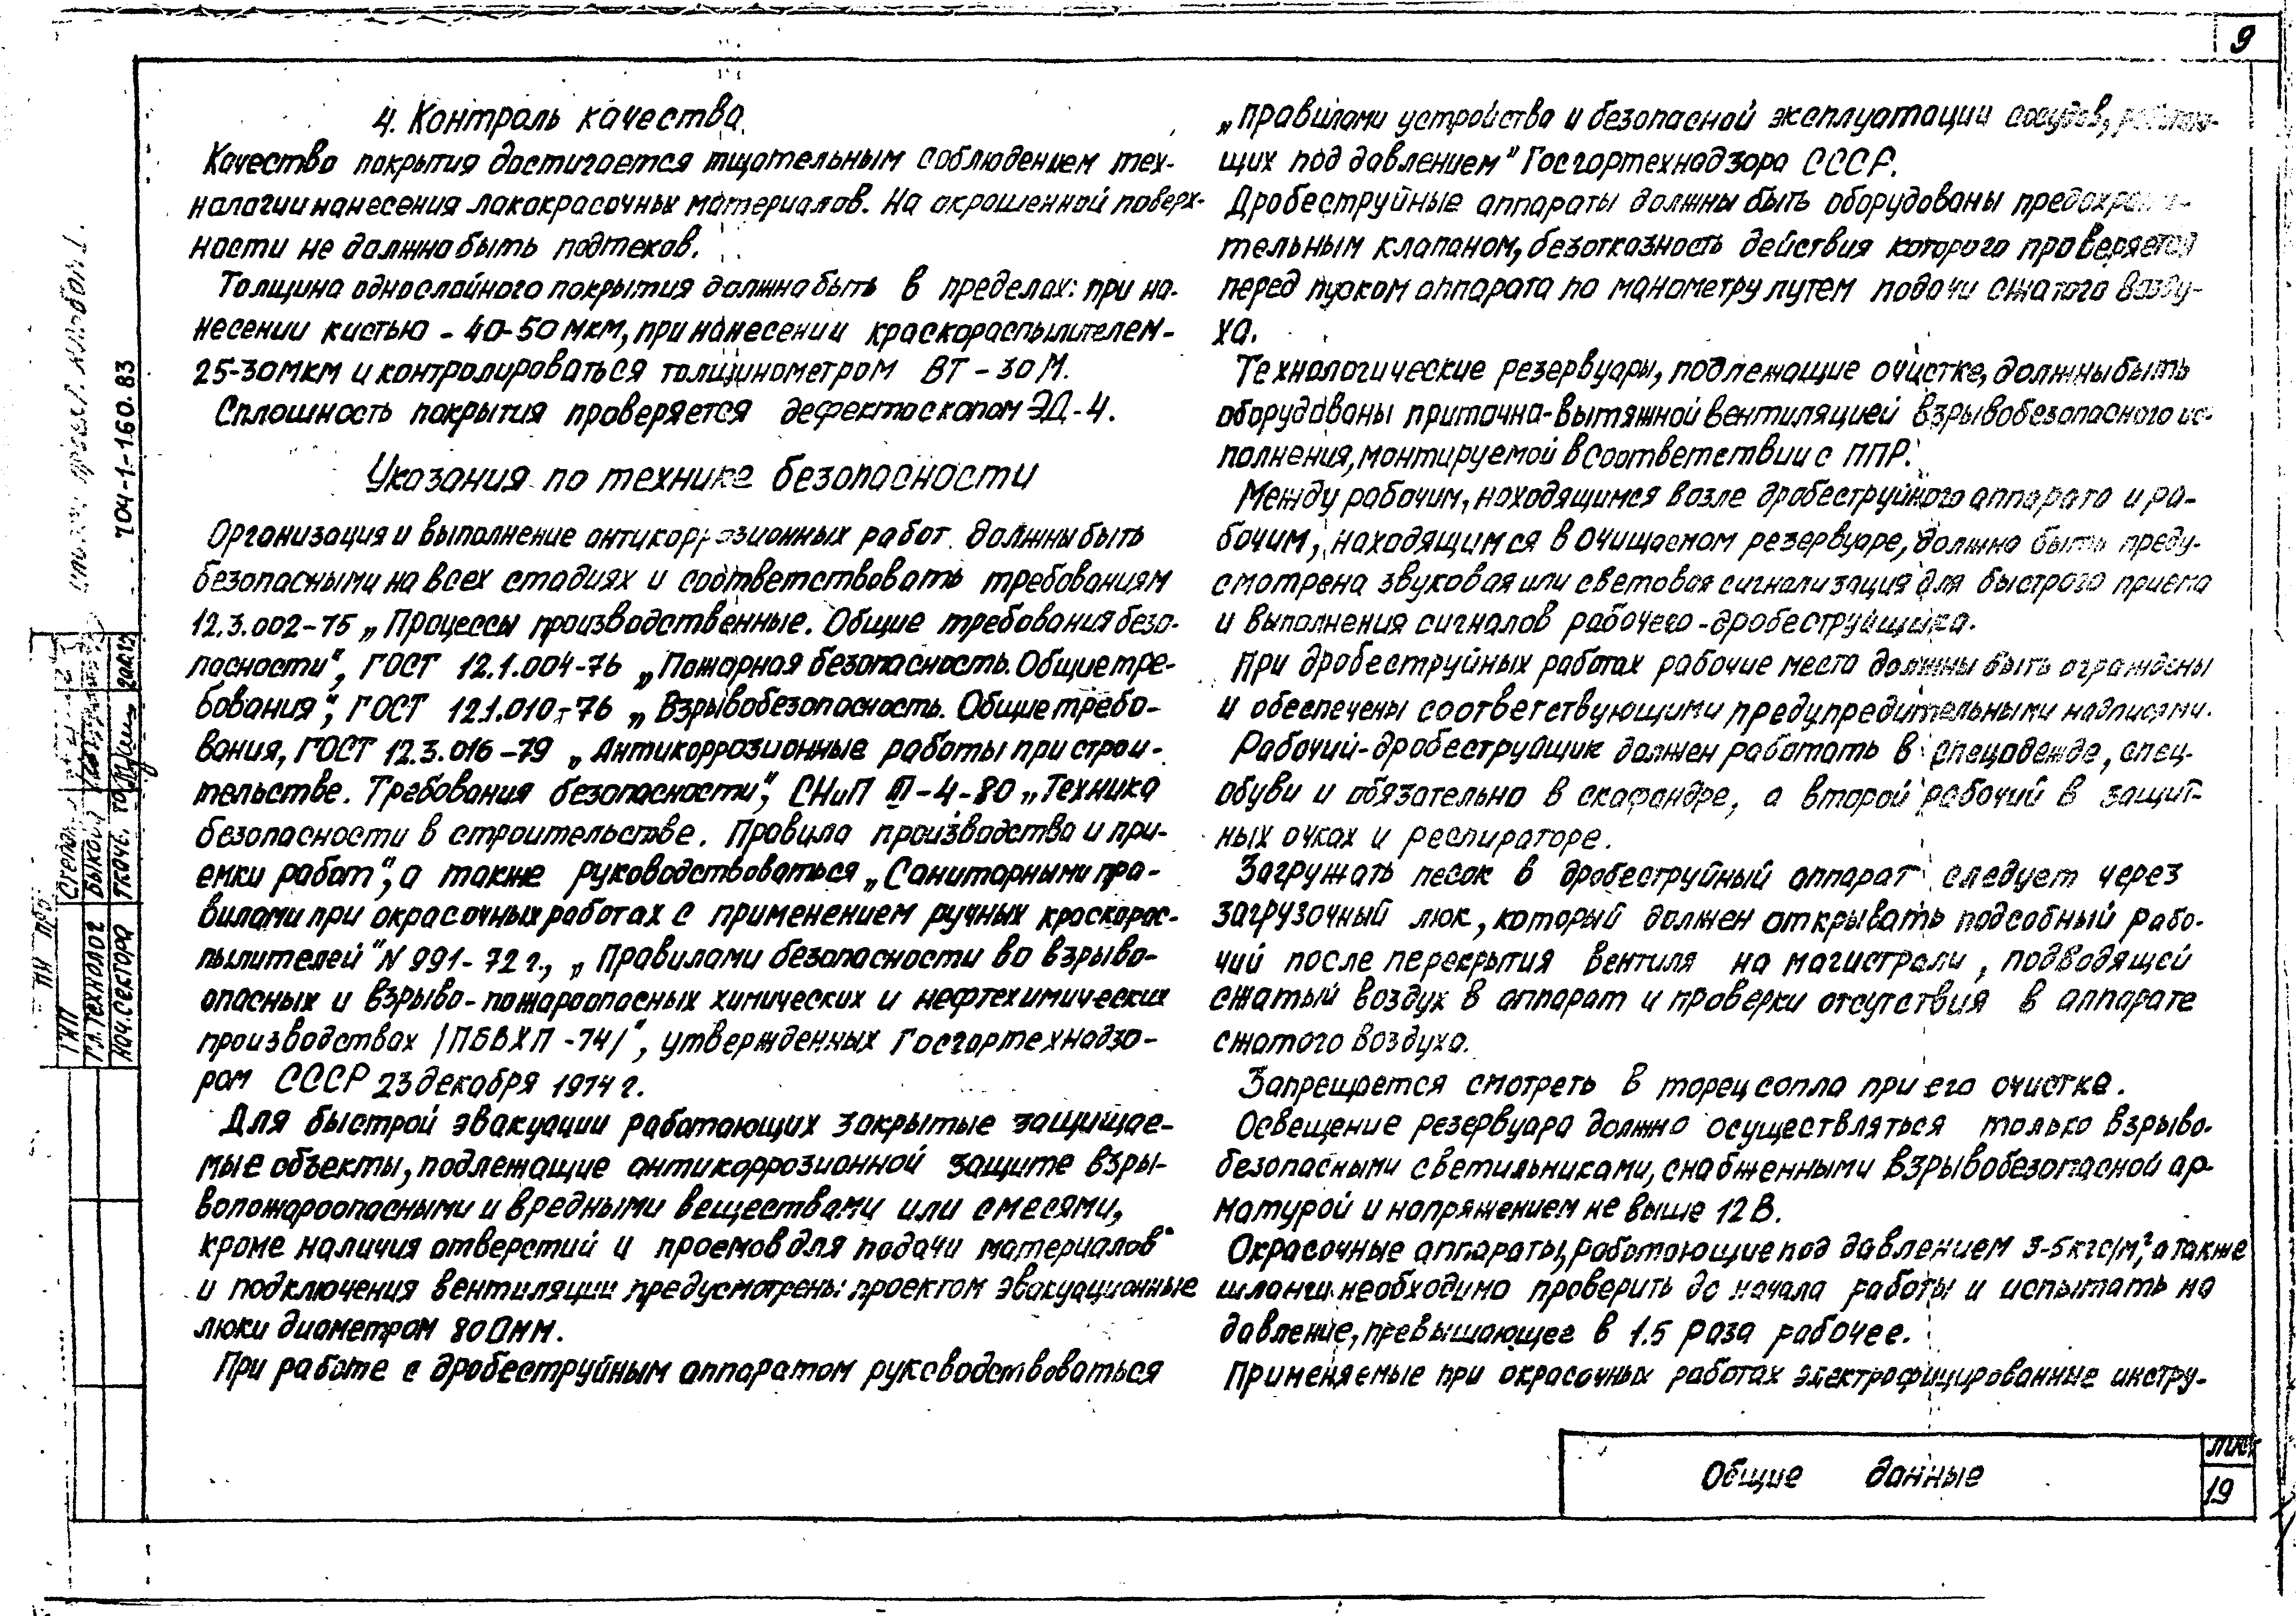 9
4. Контроль качества.
Качество покрытия достигается тщательным соблюдением тех-
нологии нанесения лакокрасочных материалов. На окрашенной поверх-
ности не должно быть подтеков.
Толщина однослойного покрытия должна быть в пределах: при на-
несении кистью - 40-50 мкм, при нанесении краскораспылителем-
25-30 мкм и контролироваться толщинометром ВТ-30М.
Сплошность покрытия проверяется дефектоскопом ЭД-4.
Указания по технике безопасности
Организация и выполнение антикоррозионных работ должны быть
безопасными на всех стадиях и соответствовать требованиям
12.3.002-75 „Процессы производственные. Общие требования безо-
пасности", ГОСТ 12.1.004-76 „Пожарная безопасность. Общие тре-
бования", ГОСТ 12.1.010-76 „Взрывобезопасность. Общие требо-
вания, ГОСТ 12.3.016-79 „Антикоррозионные работы при строи-
тельстве. Требования безопасности", СНиП III-4-80 „Техника
безопасности в строительстве. Правила производства и при-
емки работ", а также руководствоваться „Санитарными пра-
вилами при окрасочных работах с применением ручных краскорас-
пылителей" N 991-72 г., „Правилами безопасности во взрыво-
опасных и взрыво-пожароопасных химических и нефтехимических
производствах /ПБВХП-74/", утвержденных Госгортехнадзо-
ром СССР 23 декабря 1974 г.
Для быстрой эвакуации работающих закрытые защищае-
мые объекты, подлежащие антикоррозионной защите взры-
вопожароопасными и вредными веществами или смесями,
кроме наличия отверстий и проемов для подачи материалов
и подключения вентиляции предусмотрены проектом эвакуационные
люки диаметром 800мм.
При работе с дробеструйным аппаратом руководствоваться
„Правилами устройства и безопасной эксплуатации сосудов, работаю-
щих под давлением" Госгортехнадзора СССР.
Дробеструйные аппараты должны быть оборудованы предохрани-
тельным клапаном, безотказность действия которого проверяется
перед пуском аппарата по манометру путем подачи сжатого возду-
ха.
Технологические резервуары, подлежащие очистке, должны быть
оборудованы приточно-вытяжной вентиляцией взрывобезопасного ис-
полнения, монтируемой в соответствии с ППР.
Между рабочим, находящимся возле дробеструйного аппарата и ра-
бочим, находящимся в очищаемом резервуаре, должна быть преду-
смотрена звуковая или световая сигнализация для быстрого приема
и выполнения сигналов рабочего-дробеструйщика.
При дробеструйных работах рабочие места должны быть ограждены
и обеспечены соответствующими предупредительными надписями.
Рабочий-дробеструйщик должен работать в спецодежде, спец-
обуви и обязательно в скафандре, а второй рабочий в защит-
ных очках и респираторе.
Загружать песок в дробеструйный аппарат следует через
загрузочный люк, который должен открывать подсобный рабо-
чий после перекрытия вентиля на магистрали, подводящей
сжатый воздух в аппарат и проверки отсутствия в аппарате
сжатого воздуха.
Запрещается смотреть в торец сопла при его очистке.
Освещение резервуара должно осуществляться только взрыво-
безопасными светильниками, снабженными взрывобезопасной ар-
матурой и напряжением не выше 12 В.
Окрасочные аппараты, работающие под давлением 3-5 кгс/м², а также
шланги необходимо проверить до начала работы и испытать на
давление, превышающее в 1.5 раза рабочее.
Применяемые при окрасочных работах электрофицированные инстру-
Общие данные
лист
19
704-1-160.83
ГИП
Гл. технолог
Быков
Нач. сектора
Ткач